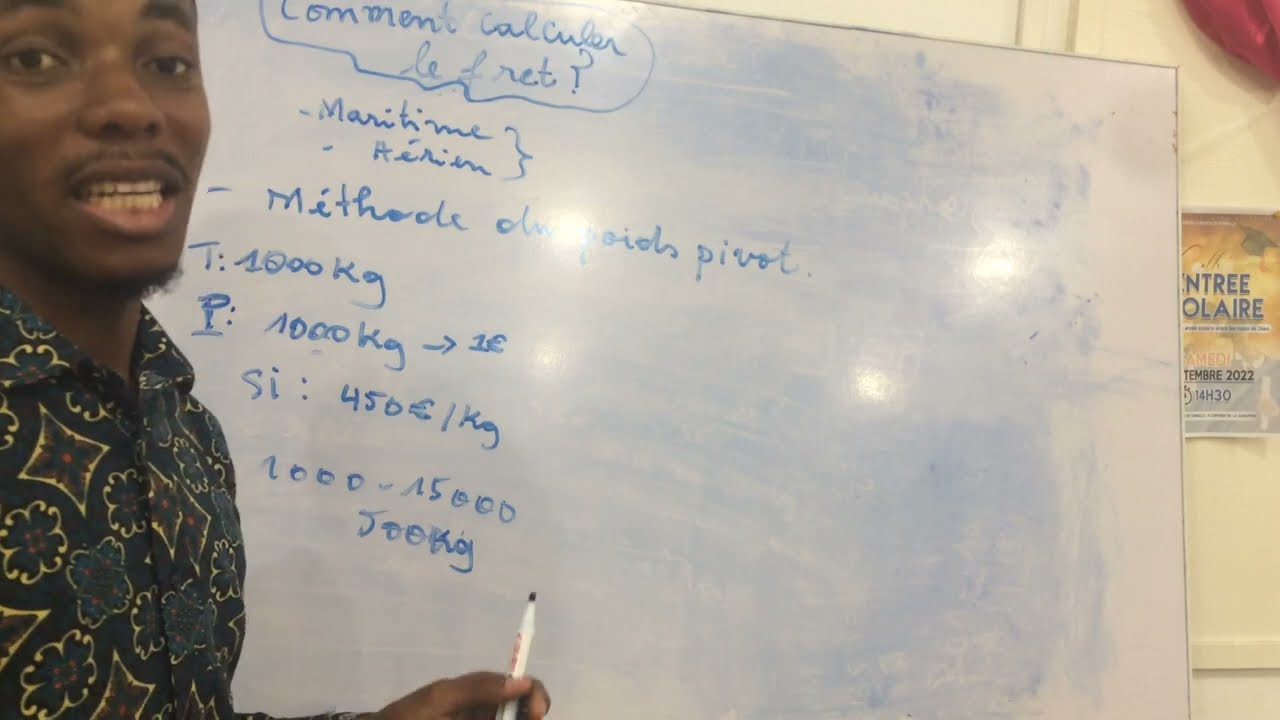 Comment calculer
le fret?
- Maritime }
- Aérien }
- Méthode du poids pivot.
T: 1000Kg
P: 1000Kg → 1€
Si : 450€/Kg
1000-15000
500Kg
ENTREE
OLAIRE
AMEDI
TEMBRE 2022
14H30